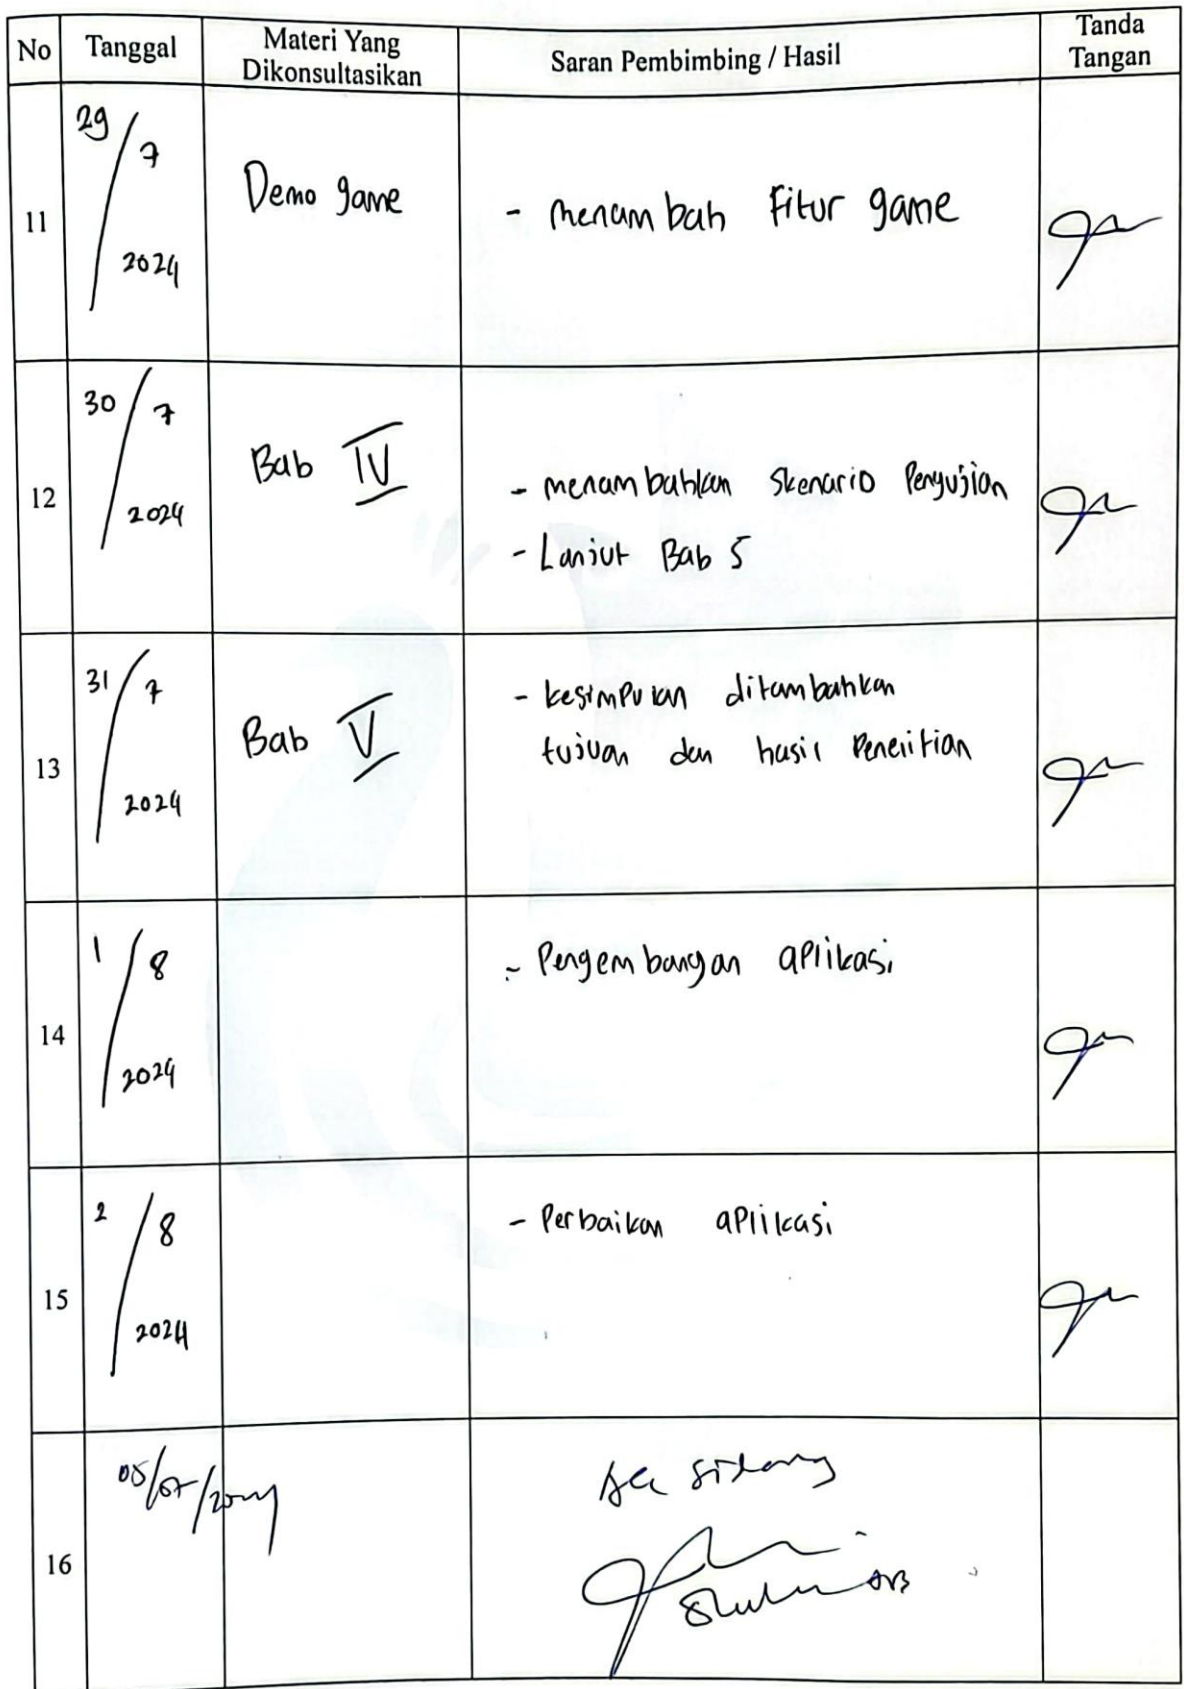 No Tanggal Materi Yang Dikonsultasikan Saran Pembimbing / Hasil Tanda Tangan
11 29/7 2024 Demo game - menambah Fitur game
12 30/7 2024 Bab IV - menambahkan Skenario Pengujian
- Lanjut Bab 5
13 31/7 2024 Bab V - kesimpulan ditambahkan
tujuan dan hasil Penelitian
14 1/8 2024 - Pengembangan aplikasi
15 2/8 2024 - Perbaikan aplikasi
16 Acc sidang